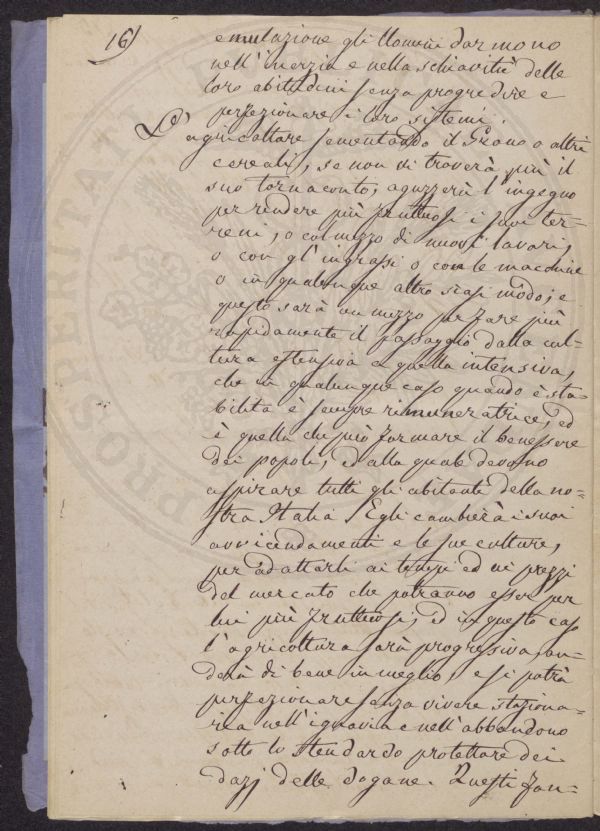 16)
emulazione gli Uomini dormono
nell'inerzia e nella schiavitù delle
loro abitudini senza progredire e
perfezionare i loro sistemi.
L'agricoltore sementando il Grano o altri
cereali, se non vi troverà più il
suo tornaconto, aguzzerà l'ingegno
per rendere più fruttuosi i suoi ter-
reni, o col mezzo di nuovi lavori,
o con gl'ingrassi o con le macchine
o in qualunque altro siasi modo; e
questo sarà un mezzo per fare più
rapidamente il passaggio dalla cul-
tura estensiva a quella intensiva,
che in qualunque caso quando è sta-
bilita è sempre rimuneratrice, ed
è quella che può formare il benessere
dei popoli, ed alla quale devono
aspirare tutti gli abitanti della no-
stra Italia. Egli cambierà i suoi
avvicendamenti e le sue culture,
per adattarli ai tempi ed ai prezzi
del mercato che potranno esser per
lui più fruttuosi; ed in questo caso
l'agricoltura sarà progressiva, an-
derà di bene in meglio, e si potrà
perfezionare senza vivere staziona-
ria nell'ignavia e nell'abbandono
sotto lo stendardo protettore dei
dazj delle dogane. Questi fan-
PROSPERITATI